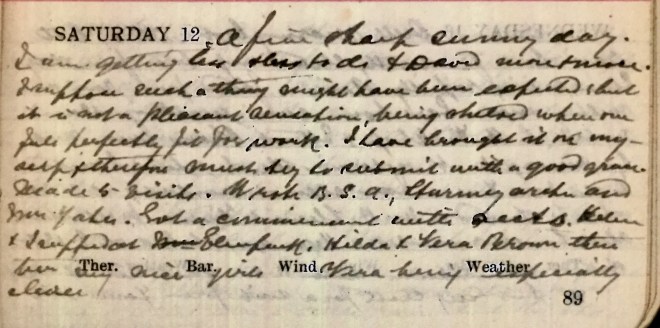 SATURDAY 12 A fine sharp sunny day.
I am getting less & less to do & David more & more.
I suppose such a thing might have been expected but
it is not a pleasant sensation, being shelved when one
feels perfectly fit for work. I have brought it on my-
self & therefore must try to submit with a good grace.
Made 5 visits. Wrote B.S.A., and
Mrs. Got a with Helen
& I supped at Mrs Hilda & Vera Brown there
two very nice girls Vera being especially
clever
Ther. Bar. Wind Weather
89